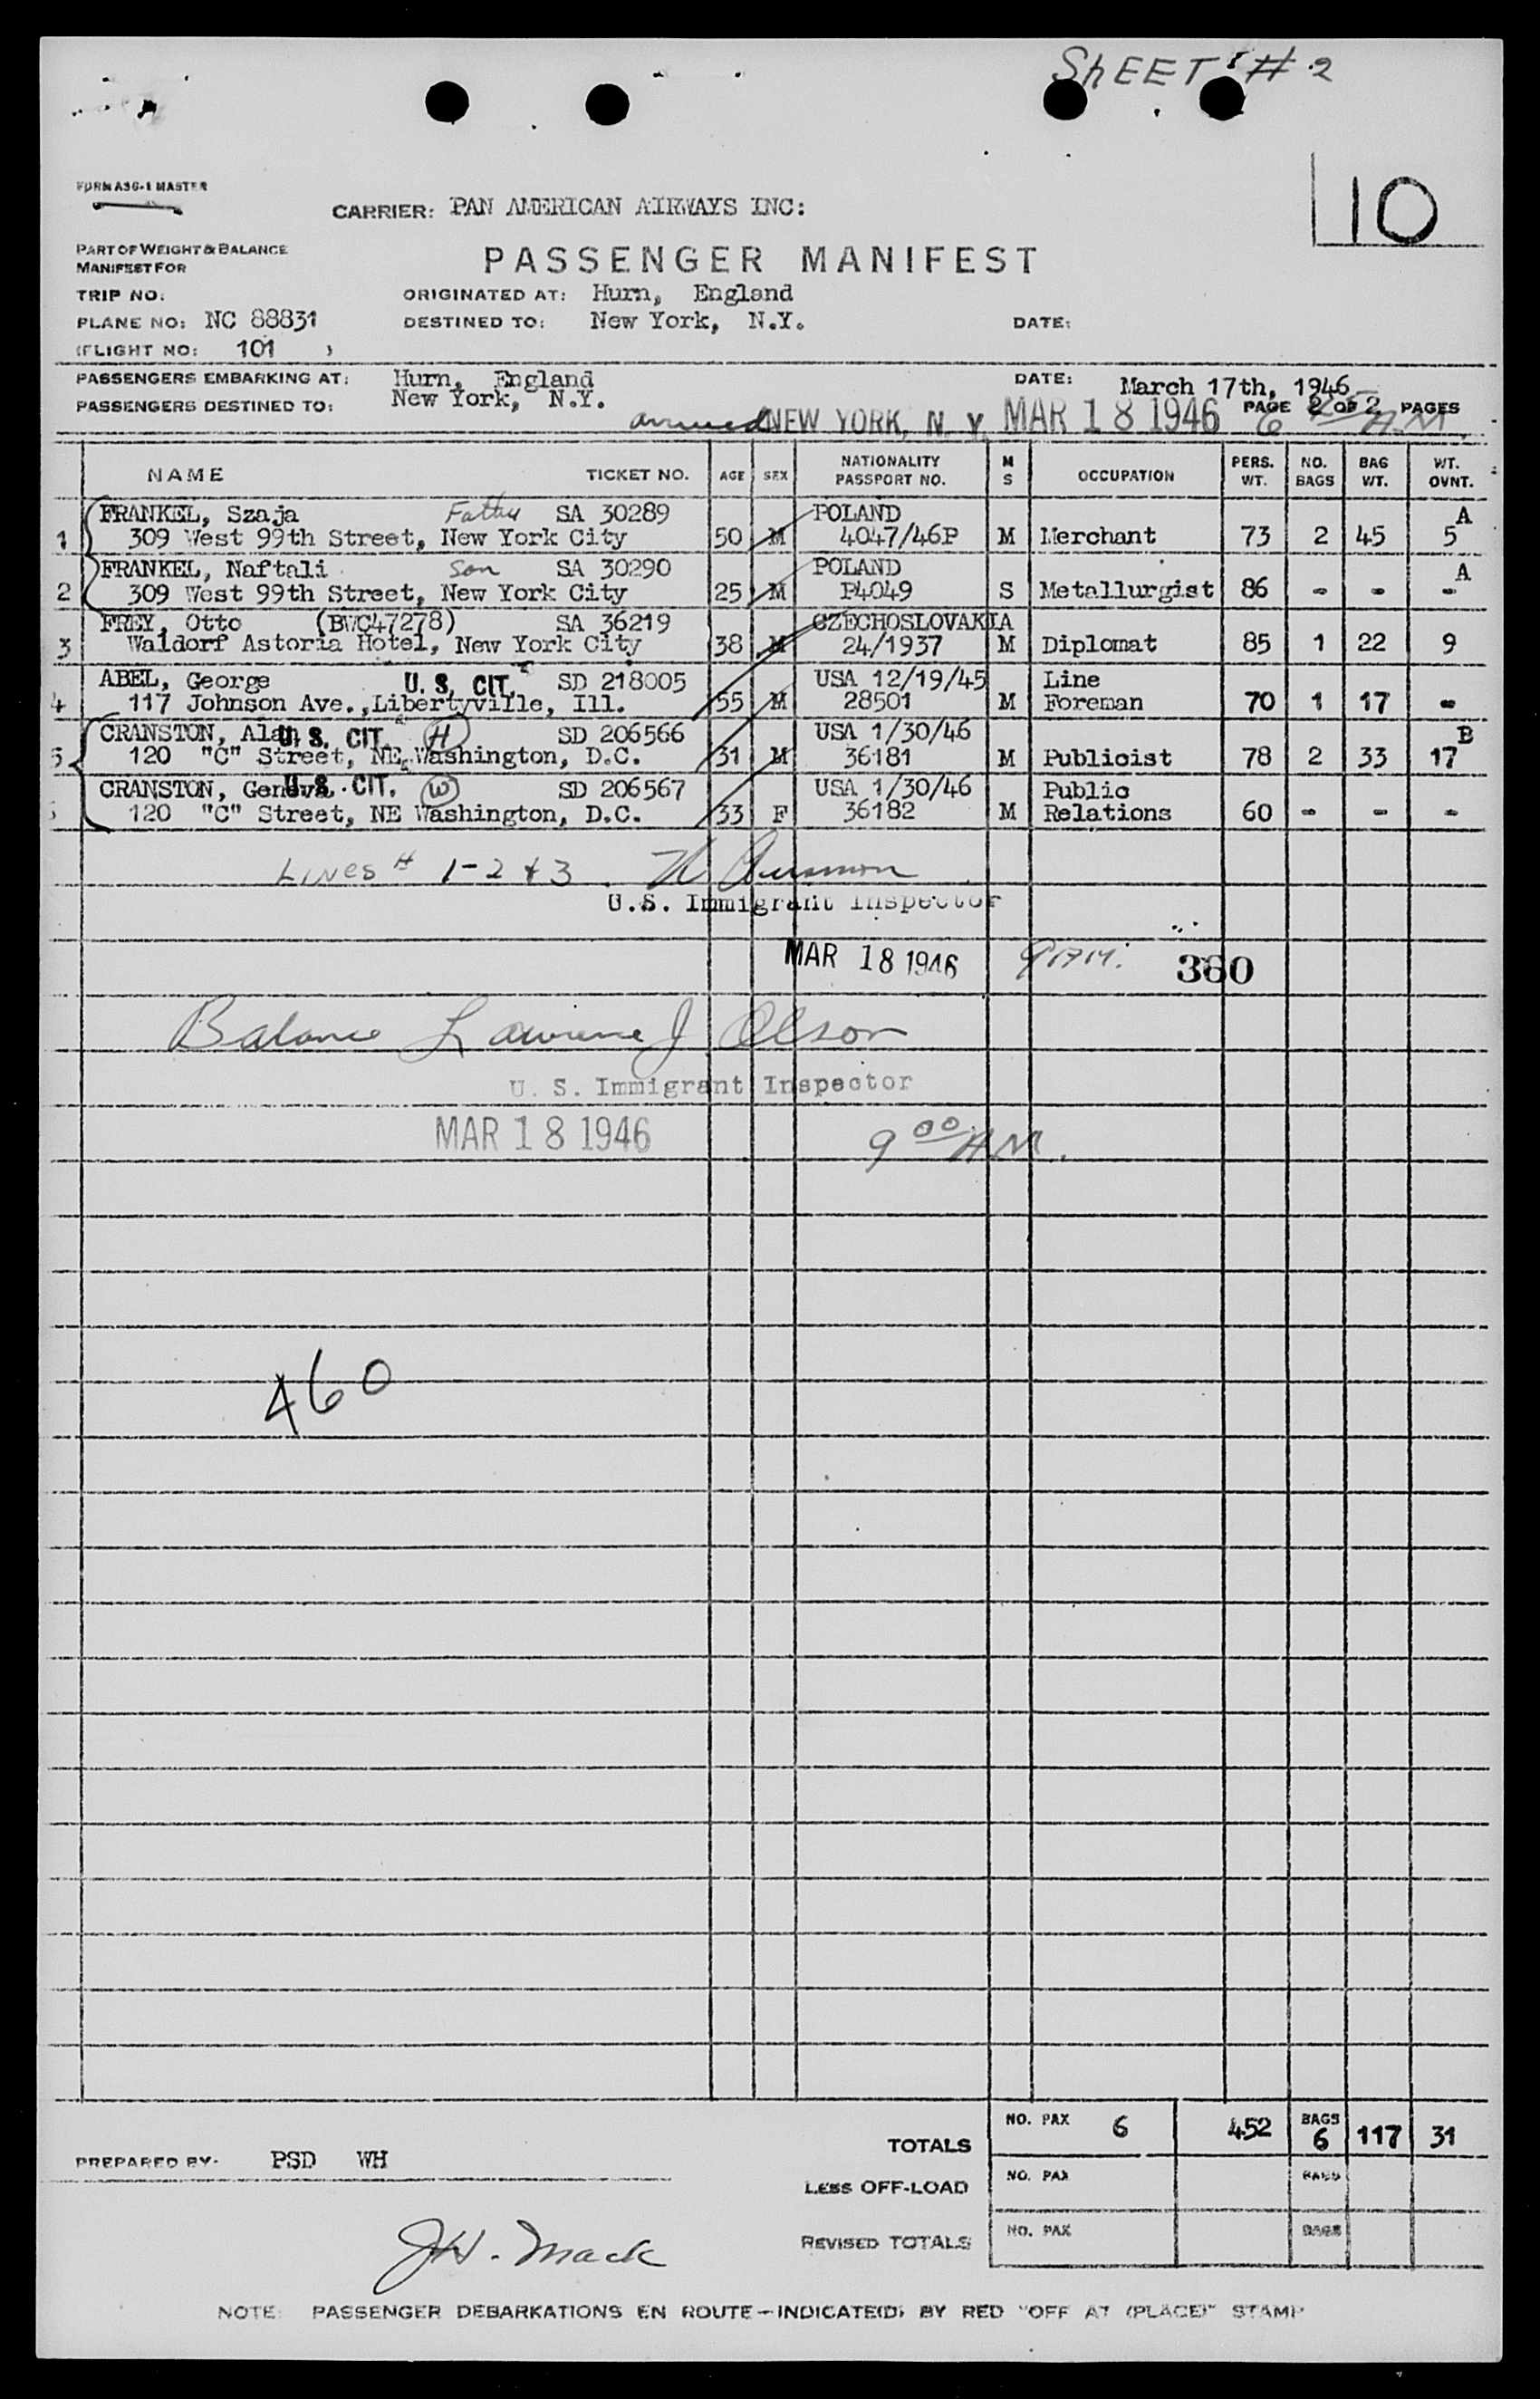 SHEET #2
10
FORM ASG-1 MASTER
CARRIER: PAN AMERICAN AIRWAYS INC:
PART OF WEIGHT & BALANCE
MANIFEST FOR
PASSENGER MANIFEST
TRIP NO:
ORIGINATED AT: Hurn, England
PLANE NO: NC 88831
DESTINED TO: New York, N.Y.
DATE:
(FLIGHT NO: 101 )
PASSENGERS EMBARKING AT: Hurn, England
DATE: March 17th, 1946
PASSENGERS DESTINED TO: New York, N.Y.
arrived NEW YORK, N. Y. MAR 18 1946 PAGE 2 OF 2 PAGES
6 A.M.
NAME TICKET NO. AGE SEX NATIONALITY PASSPORT NO. M S OCCUPATION PERS. WT. NO. BAGS BAG WT. WT. OVNT.
FRANKEL, Szaja Father SA 30289 POLAND A
1 309 West 99th Street, New York City 50 M 4047/46P M Merchant 73 2 45 5
FRANKEL, Naftali Son SA 30290 POLAND A
2 309 West 99th Street, New York City 25 M P4049 S Metallurgist 86 - - -
FREY, Otto (BWC47278) SA 36219 CZECHOSLOVAKIA
3 Waldorf Astoria Hotel, New York City 38 M 24/1937 M Diplomat 85 1 22 9
ABEL, George U. S. CIT. SD 218005 USA 12/19/45 Line
4 117 Johnson Ave., Libertyville, Ill. 55 M 28501 M Foreman 70 1 17 -
CRANSTON, Alan U. S. CIT. H SD 206566 USA 1/30/46 B
5 120 "C" Street, NE, Washington, D.C. 31 M 36181 M Publicist 78 2 33 17
CRANSTON, Geneva U. S. CIT. W SD 206567 USA 1/30/46 Public
120 "C" Street, NE Washington, D.C. 33 F 36182 M Relations 60 - - -
LINES # 1-2 & 3
U.S. Immigrant Inspector
MAR 18 1946 9 AM. 380
Balance Lawrence J Olson
U. S. Immigrant Inspector
MAR 18 1946 9 00 AM.
460
TOTALS NO. PAX 6 452 BAGS 6 117 31
PREPARED BY- PSD WH
LESS OFF-LOAD NO. PAX BAGS
REVISED TOTALS NO. PAX BAGS
JW. Mack
NOTE: PASSENGER DEBARKATIONS EN ROUTE - INDICATE(D) BY RED "OFF AT (PLACE)" STAMP